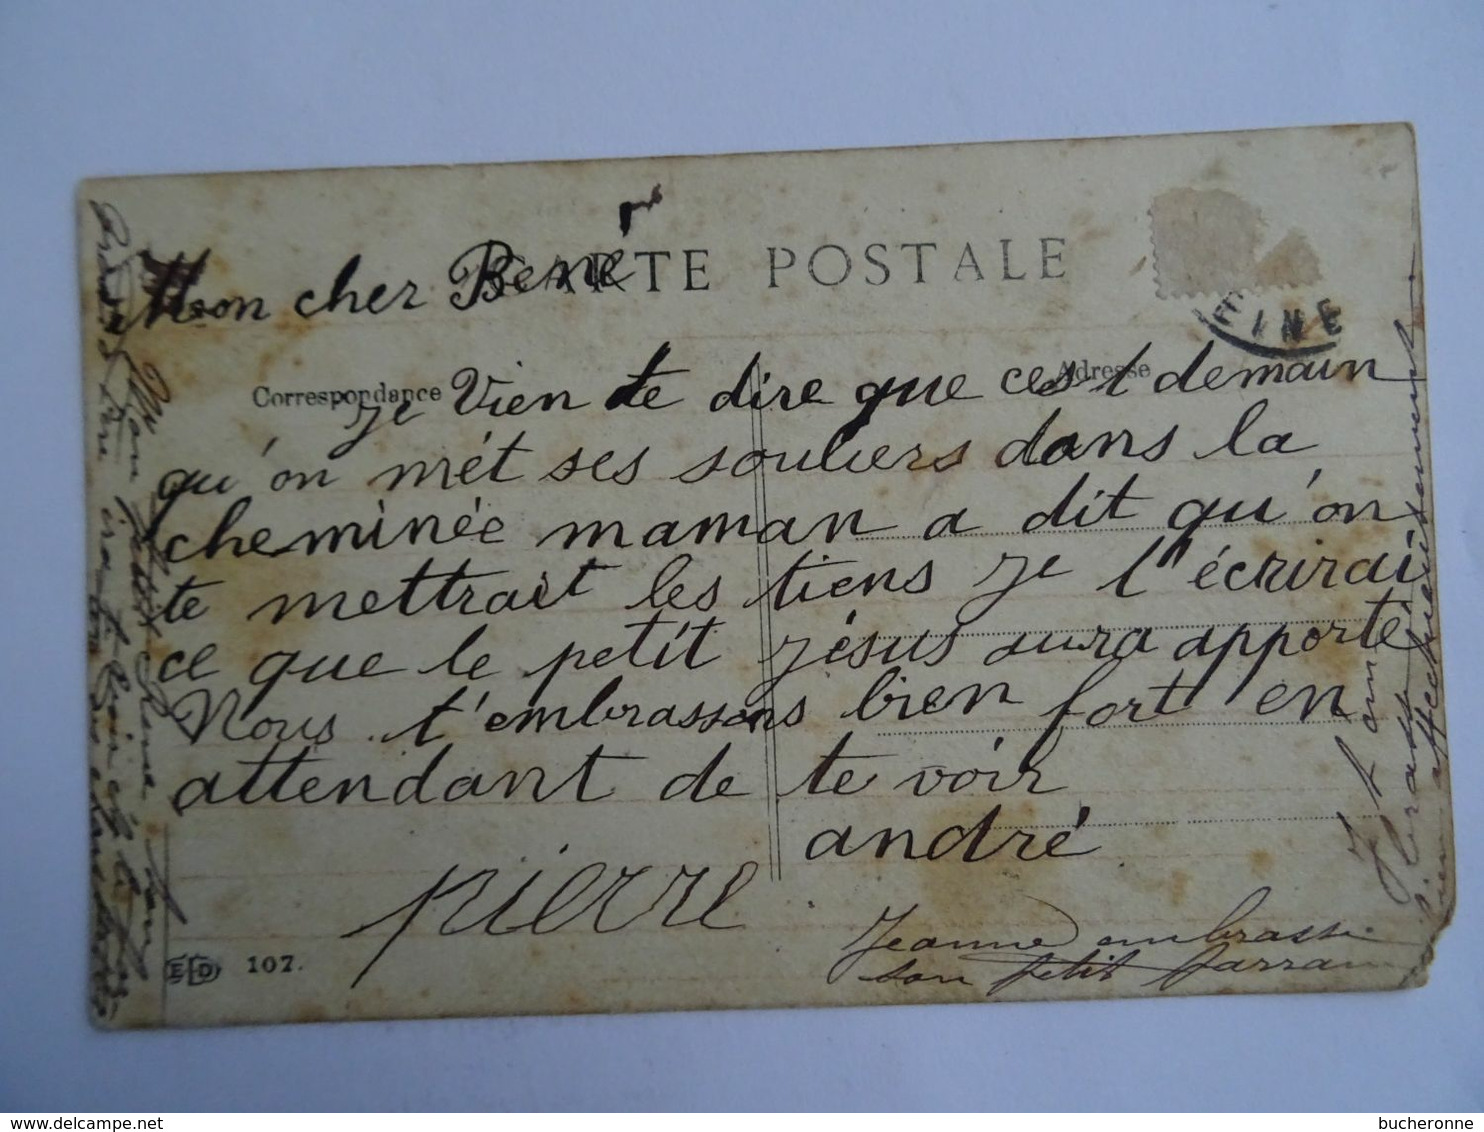 CARTE POSTALE
Mon cher René
Correspondance
Adresse
INE
je vien te dire que ces t demain
qu'on mét ses souliers dans la
cheminée maman a dit qu'on
te mettrait les tiens je t'écrirai
ce que le petit jésus aura apporté
Nous t'embrassons bien fort en
attendant de te voir
andré
pierre
Jeanne embrasse
son petit Parrain
ED 107.
Mon petit René ton
ira te voir
Je t'em
brasse
bien affectueusement
bucheronne